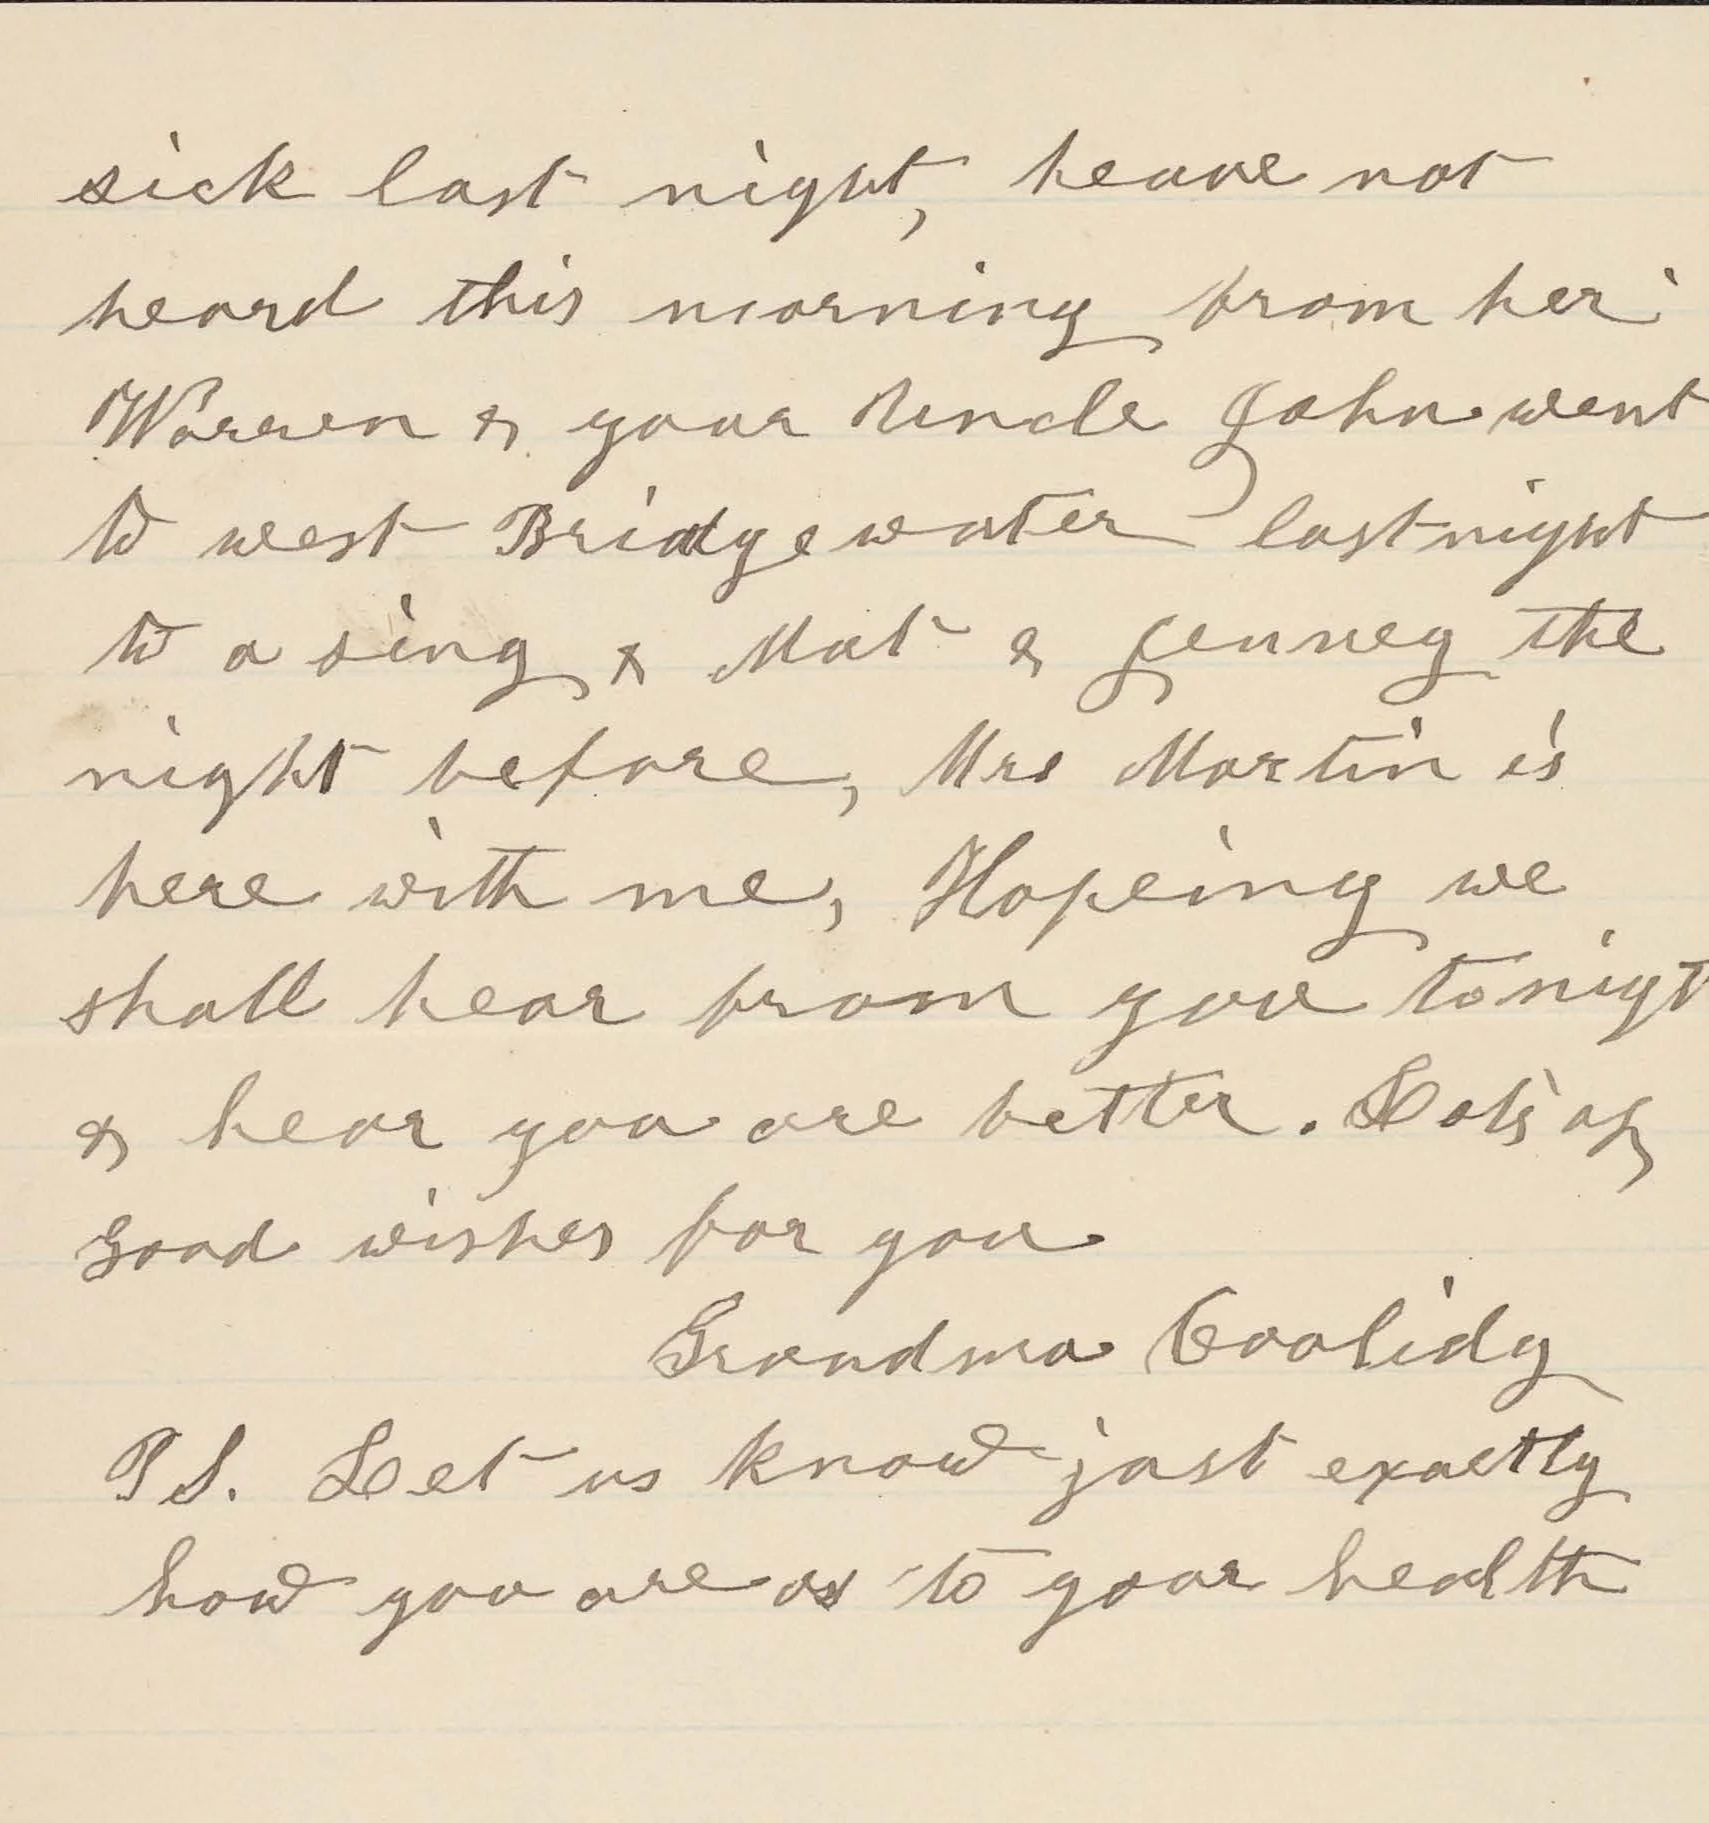 sick last night, heave not
heard this morning from her
Warren & your Uncle John went
to west Bridgewater last night
to a sing & Mat & Jenney the
night before, Mrs Martin is
here with me, Hopeing we
shall hear from you tonigt
& hear you are better. Lots of
good wishes for you
Grandma Coolidg
P S. Let us know just exactly
how you are as to your health